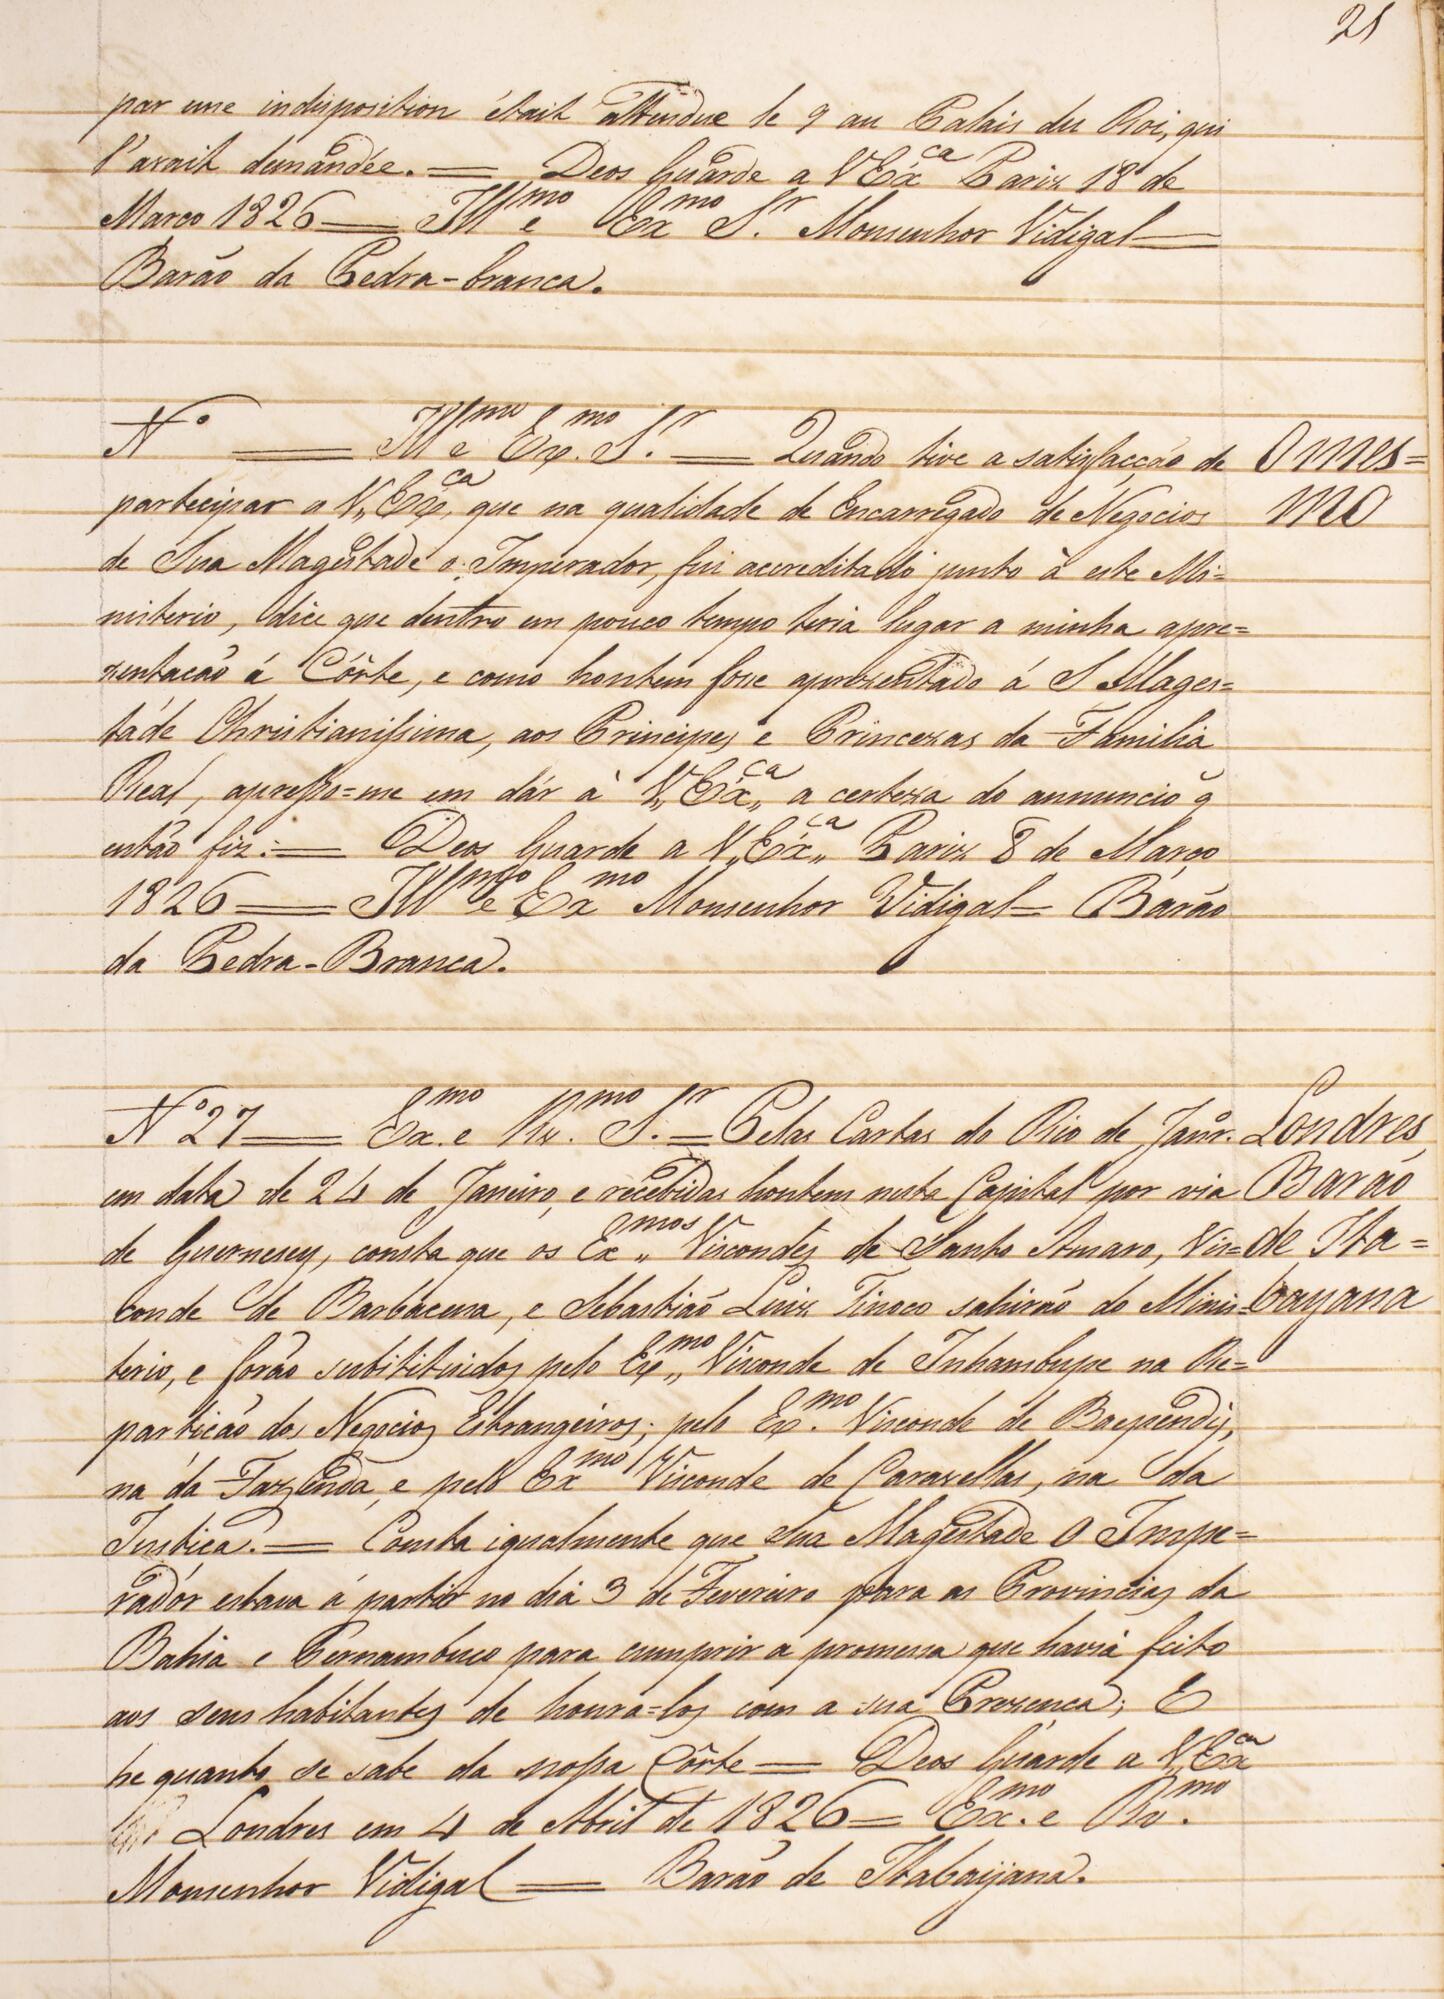 21
par une indisposition était attendue le 9 au Palais du Roi, qui
l'avait demandée. = Deos Guarde a V Exca Pariz 18 de
Março 1826 = Illmo e Exmo Sr. Monsenhor Vidigal =
Barão da Pedra-branca.
No = Illmo e Exmo Sr. = Quando tive a satisfacção de
participar a V,, Exca, que na qualidade de Encarregado de Negocios
de Sua Magestade o Imperador, fui accreditado junto à este Mi=
nisterio, dice que dentro em pouco tempo teria lugar a minha apre=
zentacão á Côrte, e como hontem fosse aprezentado á S Mages=
táde Christianissima, aos Principes e Princezas da Familia
Real, apresso=me em dár à V,, Exca,, a certeza do annuncio q
então fiz := Deos Guarde a V,, Exca,, Pariz 8 de Março
1826 = Illmo e Exmo Monsenhor Vidigal = Barão
da Pedra-Branca.
O mes=
mo
No 27 = Exmo e Rmo. Sr. = Pelas Cartas do Rio de Janr.
em data de 24 de Janeiro, e recebidas hontem nesta Capital por via
de Guernesey, consta que os Exmos,, Viscondes de Santo Amaro, Vis=
conde de Barbacena, e Sebastião Luiz Tinoco sahirão do Minis=
terio, e forão substituidos pelo Exmo,, Visconde de Inhambupe na Re=
particão dos Negocios Estrangeiros; pelo Exmo. Visconde de Baependy,
na da Fazenda, e pelo Exmo Visconde de Caravellas, na da
Justica. = Consta igualmente que Sua Magestade O Impe=
radôr estava á partir no dia 3 de Fevereiro para as Provincias da
Bahia e Pernambuco para cumprir a promessa que havia feito
aos seus habitantes de honra=los com a sua Prezenca; E
he quanto se sabe da nossa Côrte = Deos Guarde a V,, Exca
Londres em 4 de Abril de 1826 = Exmo. e Rmo.
Monsenhor Vidigal = Barão de Itabaijana.
Londres
Barão
de Ita=
bayana